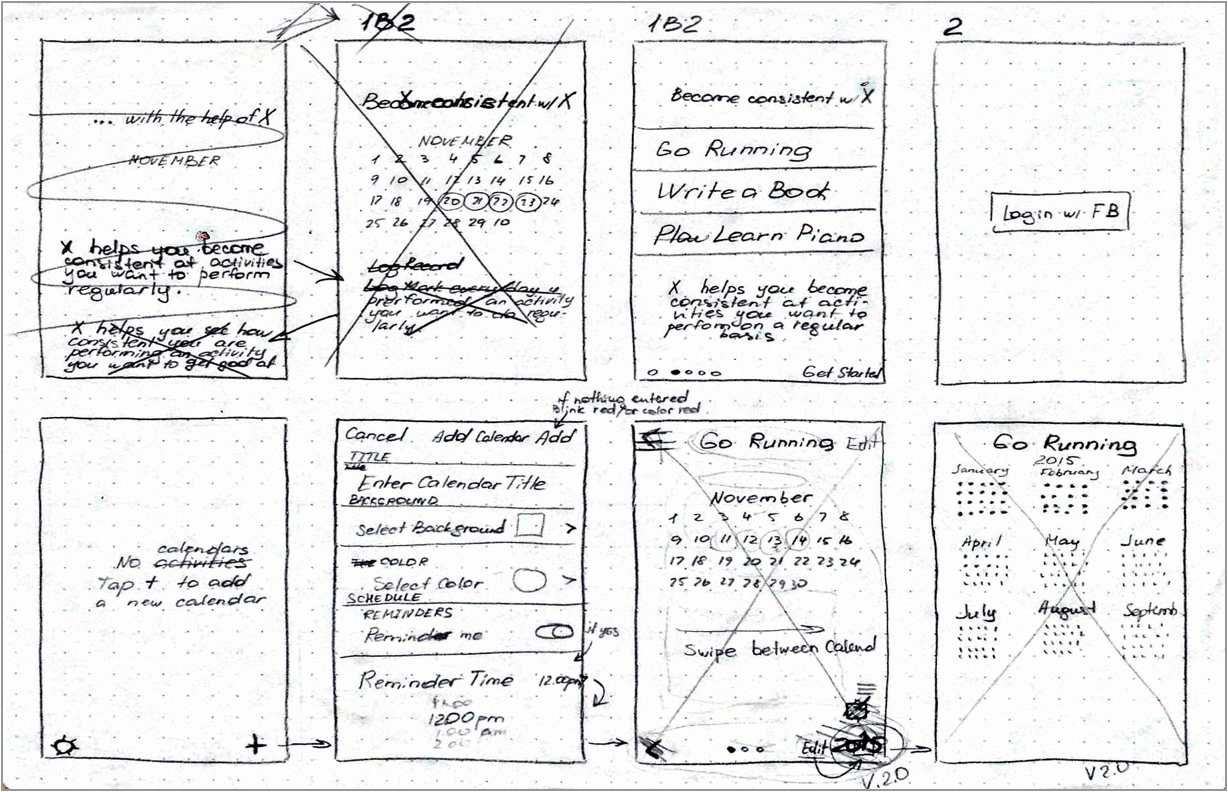 1B2
1B2
2
... with the help of X
NOVEMBER
X helps you become
consistent at activities
you want to perform
regularly.
X helps you see how
consistent you are
performing an activity
you want to get good at
Become consistent w/ X
NOVEMBER
1 2 3 4 5 6 7 8
9 10 11 12 13 14 15 16
17 18 19 20 21 22 23 24
25 26 27 28 29 10
Log Record
Log Mark every day u
prerformed an activity
you want to do regu-
larly
Become consistent w/ X
Go Running
Write a Book
Play Learn Piano
X helps you become
consistent at acti-
vities you want to
perform on a regular
basis.
Get Started
Login w/ FB
calendars
No activities
Tap + to add
a new calendar
+
if nothing entered
Blink red/or color red
Cancel Add Calendar Add
TITLE
Enter Calendar Title
BACKGROUND
Select Background >
COLOR
Select Color >
SCHEDULE
REMINDERS
Reminder me
if yes
Reminder Time 12.00pm
12.00 pm
1.00 am
2.00
Go Running Edit
November
1 2 3 4 5 6 7 8
9 10 11 12 13 14 15 16
17 18 19 20 21 22 23 24
25 26 27 28 29 30
Swipe between Calend
Edit 2015
V.2.0
Go Running
2015
January February March
April May June
July August Septemb
V2.0